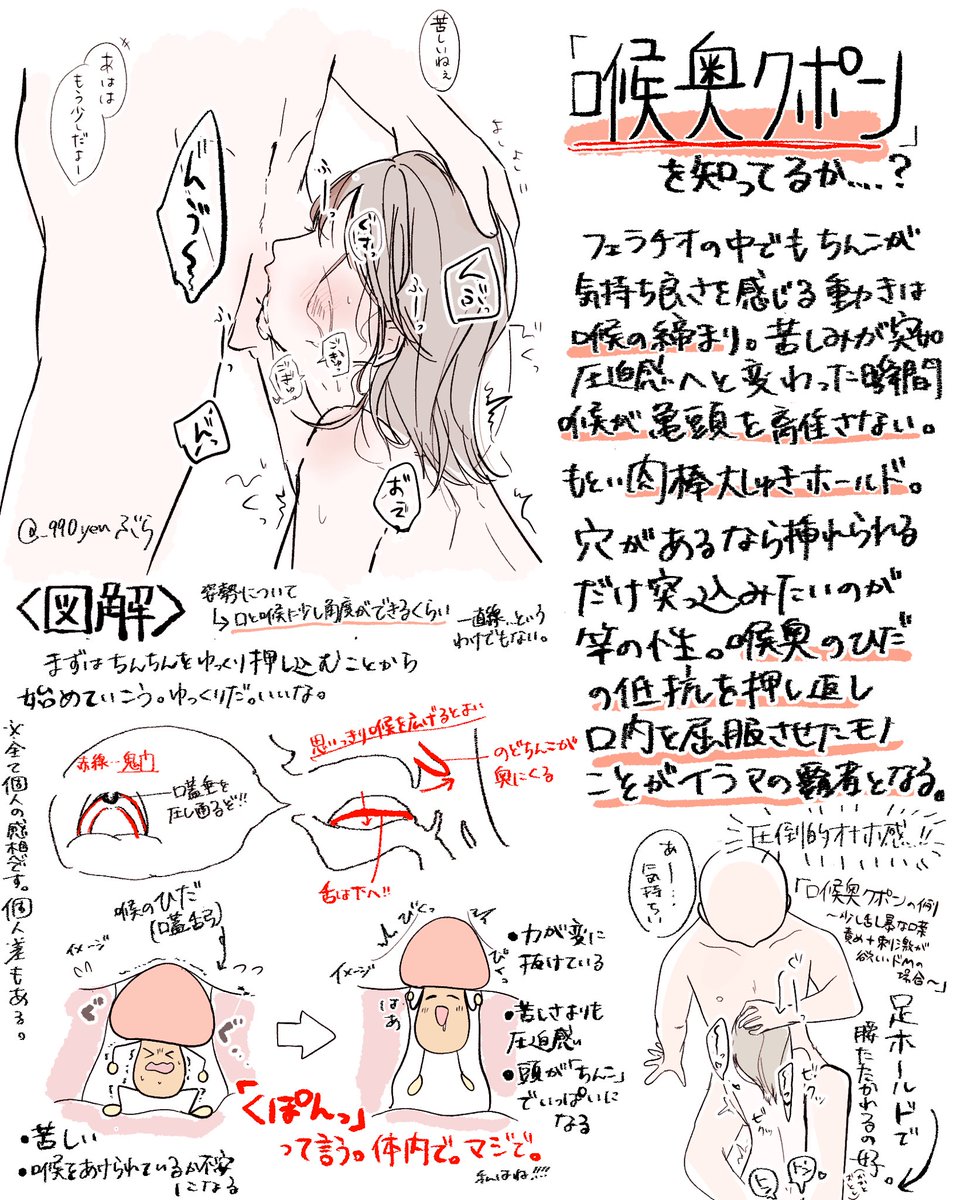 「喉奥クポーン」
を知ってるか…?
フェラチオの中でもちんこが
気持ち良さを感じる動きは
喉の締まり。苦しみが突如
圧迫感へと変わった瞬間
喉が亀頭を離さない。
もとい肉棒大しゅきホールド。
穴があるなら挿れられる
だけ突っ込みたいのが
竿の性。喉奥のひだ
の抵抗を押し返し
口内を屈服させたモノ
ことがイラマの覇者となる。
苦しいねぇ
よしよし
あはは
もう少しだよー
ん゙ゔ~
ぐぶ
お゙え
@_990yen ぶら
〈図解〉
姿勢について
↳口と喉に少し角度ができるくらい
一直線…という
わけでもない。
まずはちんちんをゆっくり押し込むことから
始めていこう。ゆっくりだ。いいな。
※全て個人の感想です。個人差もある。
赤線…鬼門
口蓋垂を
圧し通るど!!
思いっきり喉を広げるとよい
のどちんこが
奥にくる
舌は下へ!!
喉のひだ
(口蓋舌弓)
イメージ
・苦しい
・喉をあけられているか不安
になる
イメージ
びくっ
はぁ
・力が変に
抜けている
・苦しさよりも
圧迫感
・頭が「ちんこ」
でいっぱいに
なる
「くぽんっ」
って言う。体内で。マジで。
私はね!!!!
圧倒的オナホ感!!
あー…
気持ちい
「喉奥クポーンの例
~少し乱暴な喉
責め+刺激が
欲しいドMの
場合~」
足ホールドで
膝たたかれるの好。
ビクッ
ビクッ
トン
トン